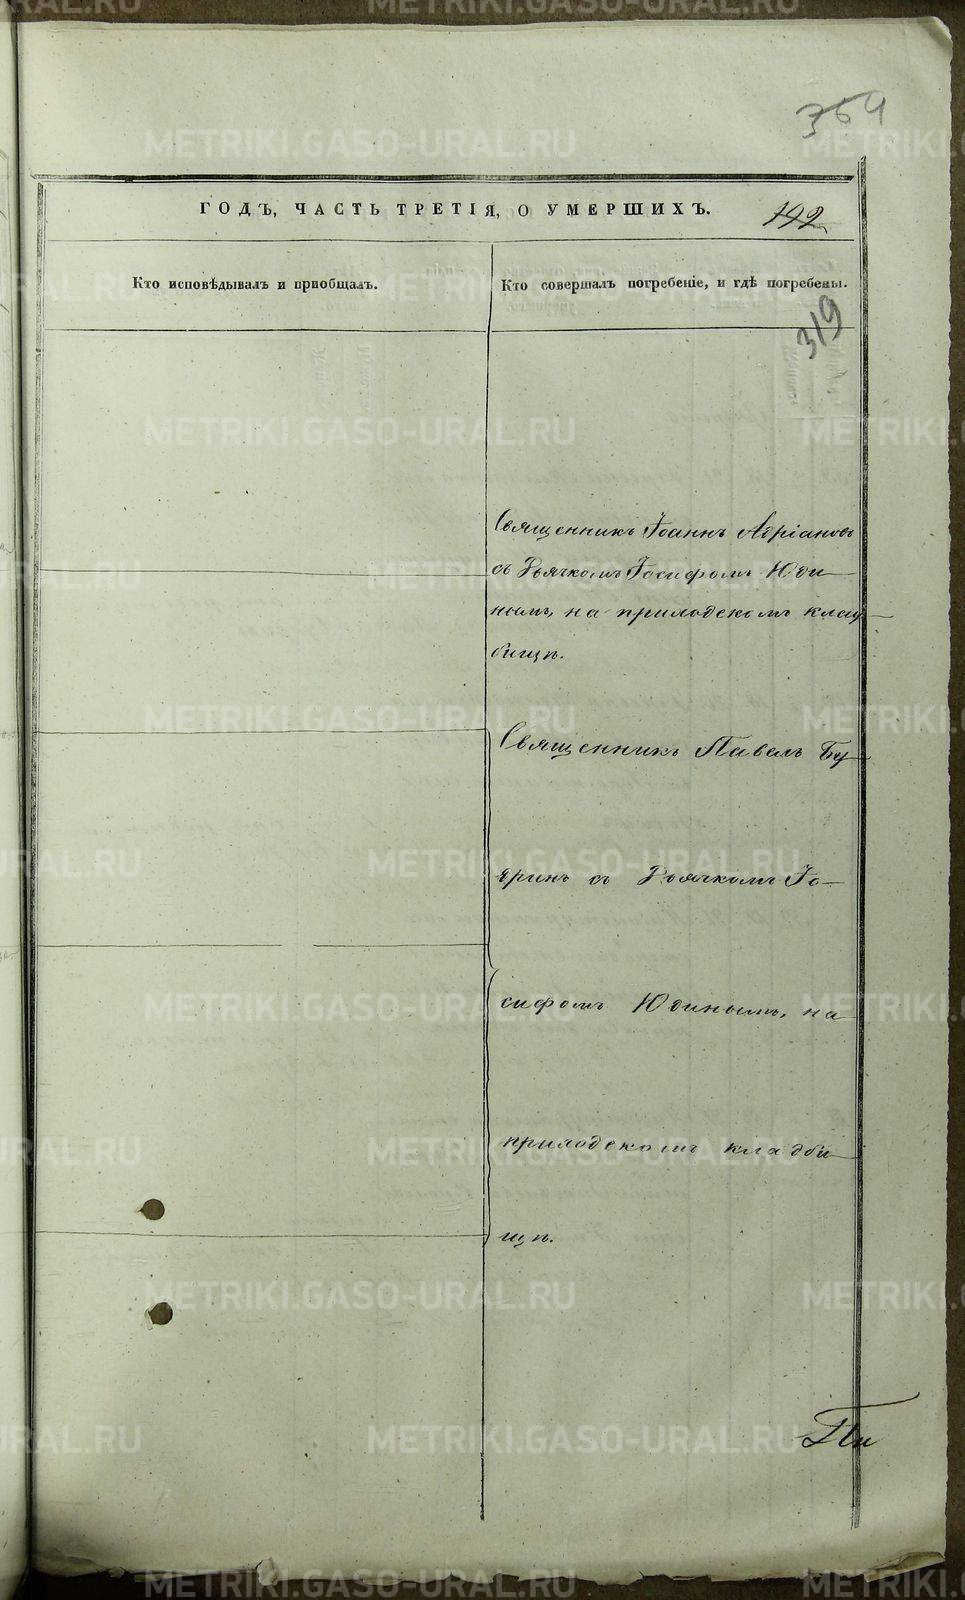 364
ГОДЪ, ЧАСТЬ ТРЕТІЯ, О УМЕРШИХЪ. 192
Кто исповѣдывалъ и пріобщалъ.
Кто совершалъ погребеніе, и гдѣ погребены.
319
Священникъ Іоаннъ Адріановъ
съ Дьячкомъ Іосифомъ Юди
нымъ, на приходскомъ клад
бищѣ.
Священникъ Павелъ Бу
съ Дьячкомъ Іо
сифомъ Юдинымъ, на
приходскомъ кладби
щѣ.
METRIKI.GASO-URAL.RU